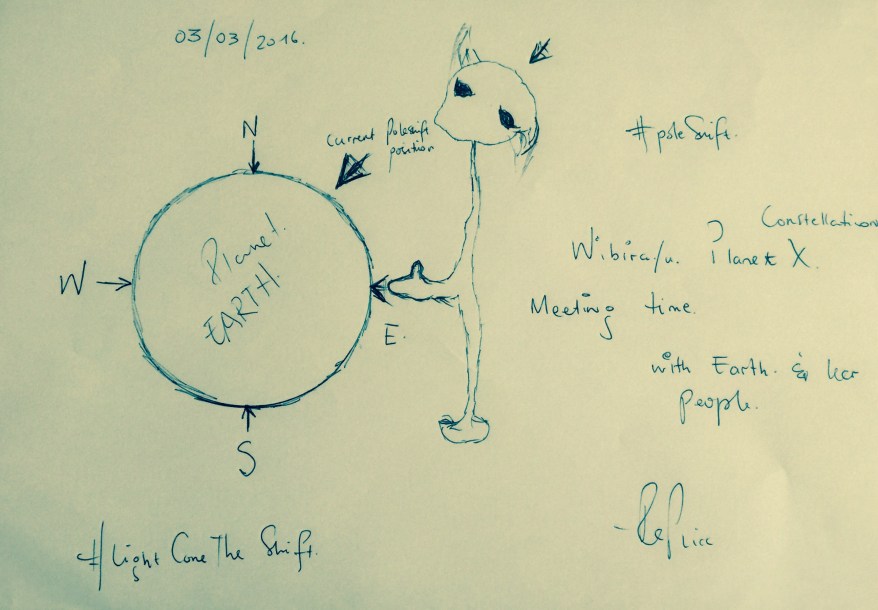 03/03/2016.
N
Current Poleshift
position
# poleShift.
Planet.
EARTH.
W
E.
S
Constellation
Wibira/u. Planet X.
Meeting time.
with Earth. & her
people.
#Light Cone The Shift.